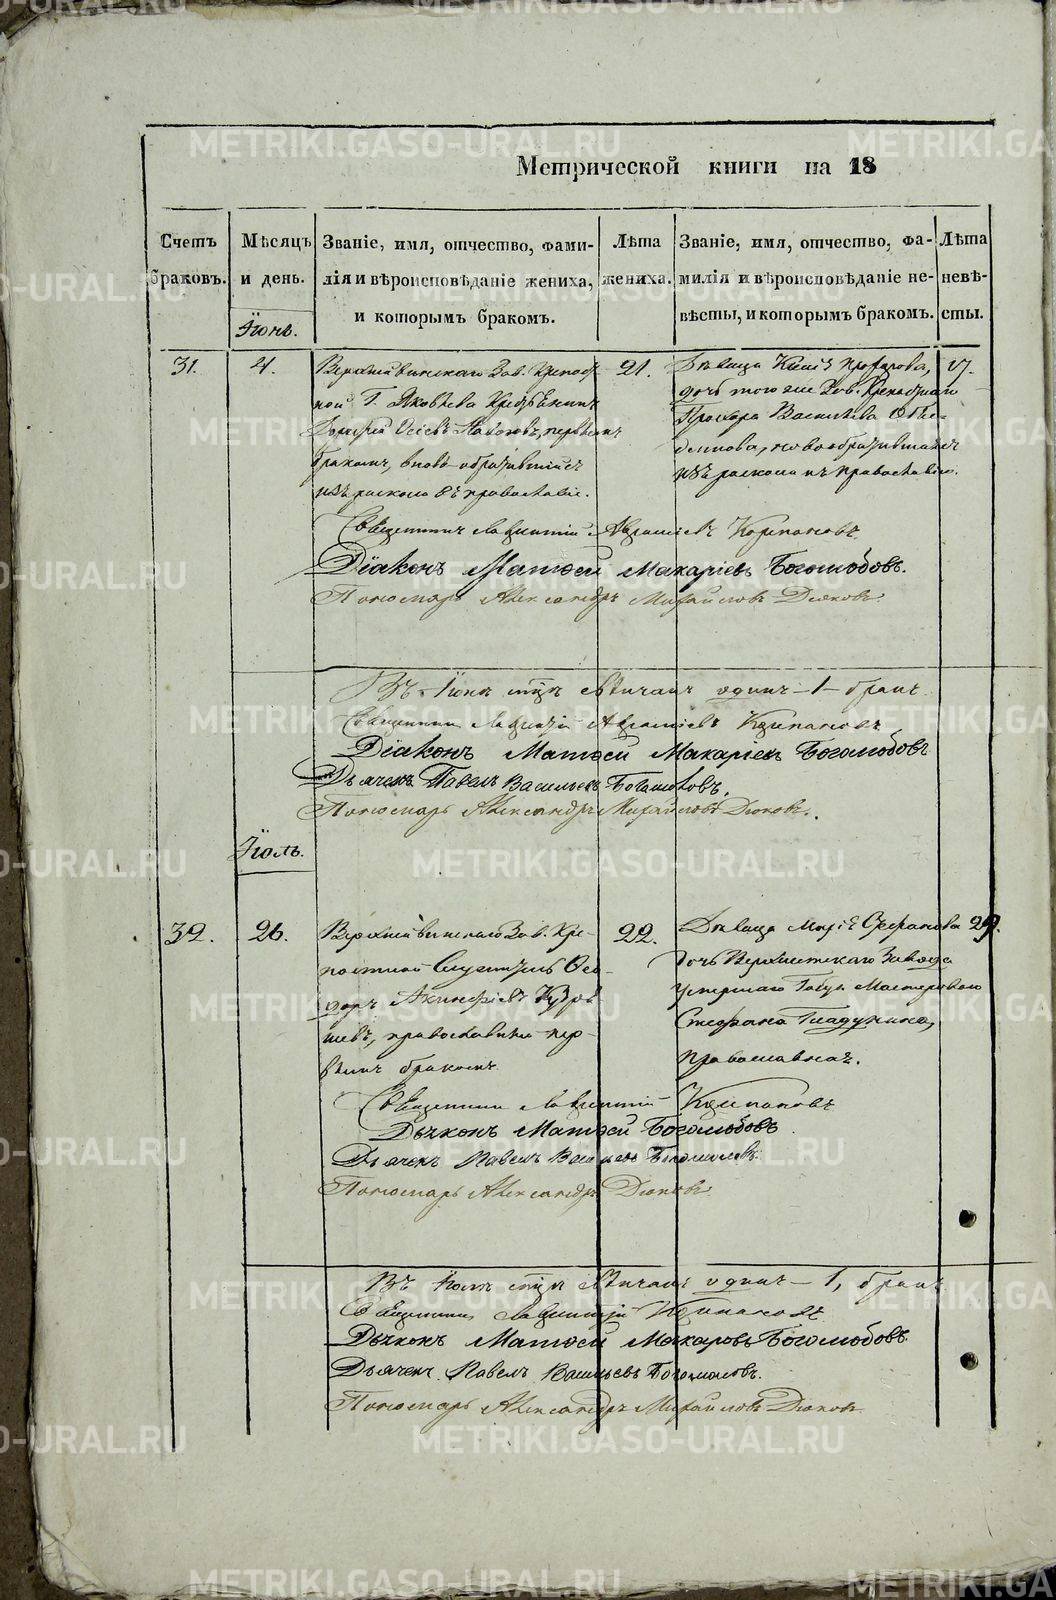 METRIKI.GASO-URAL.RU
Метрической книги на 18
Счетъ браковъ.
Мѣсяцъ и день.
Званіе, имя, отчество, фами-
лія и вѣроисповѣданіе жениха,
и которымъ бракомъ.
Лѣта жениха.
Званіе, имя, отчество, фа-
милія и вѣроисповѣданіе не-
вѣсты, и которымъ бракомъ.
Лѣта невѣ-
сты.
Іюнь.
31.
4.
Верхнейвинскаго Зав. крепост
ной Г. Яковлева
первымъ
бракомъ, вновь обратившійся
изъ раскола въ православіе.
21.
Дѣвица
дочь того же Зав.
Прохора Васильева
новообратившаяся
изъ раскола къ православію.
17.
Священникъ Лаврентій Корепановъ
Діаконъ Матѳей Макаріевъ Боголюбовъ.
Пономарь Александръ Михайловъ Дюковъ.
Въ Іюнѣ мцѣ вѣнчанъ одинъ – 1 – бракъ.
Священникъ Лаврентій Корепановъ
Діаконъ Матѳей Макаріевъ Боголюбовъ
Дьячекъ Павелъ Васильевъ Богомоловъ.
Пономарь Александръ Михайловъ Дюковъ.
Іюль.
32.
26.
Верхнейвинскаго Зав. Кре-
постной Служитель Ѳео-
доръ
православный пер-
вымъ бракомъ
22.
Дѣвица Марія Стефанова
дочь Завода
умершаго
Стефана
православная.
29.
Священникъ Лаврентій Корепановъ
Дьяконъ Матѳей Боголюбовъ
Дьячекъ Павелъ Васильевъ Богомоловъ.
Пономарь Александръ Дюковъ
Въ Іюлѣ мцѣ вѣнчанъ одинъ – 1, бракъ
Священникъ Лаврентій Корепановъ
Дьяконъ Матѳей Макаровъ Боголюбовъ
Дьячекъ Павелъ Васильевъ Богомоловъ.
Пономарь Александръ Михайловъ Дюковъ